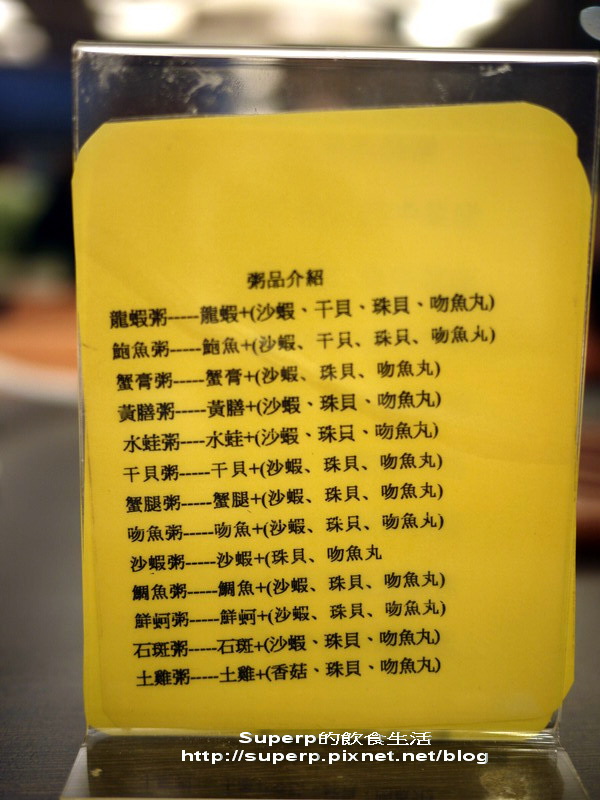 粥品介紹
龍蝦粥-----龍蝦+(沙蝦、干貝、珠貝、吻魚丸)
鮑魚粥-----鮑魚+(沙蝦、干貝、珠貝、吻魚丸)
蟹膏粥-----蟹膏+(沙蝦、珠貝、吻魚丸)
黃膳粥-----黃膳+(沙蝦、珠貝、吻魚丸)
水蛙粥-----水蛙+(沙蝦、珠貝、吻魚丸)
干貝粥-----干貝+(沙蝦、珠貝、吻魚丸)
蟹腿粥-----蟹腿+(沙蝦、珠貝、吻魚丸)
吻魚粥-----吻魚+(沙蝦、珠貝、吻魚丸)
沙蝦粥-----沙蝦+(珠貝、吻魚丸
鯛魚粥-----鯛魚+(沙蝦、珠貝、吻魚丸)
鮮蚵粥-----鮮蚵+(沙蝦、珠貝、吻魚丸)
石斑粥-----石斑+(沙蝦、珠貝、吻魚丸)
土雞粥-----土雞+(香菇、珠貝、吻魚丸)
Superp的飲食生活
http://superp.pixnet.net/blog